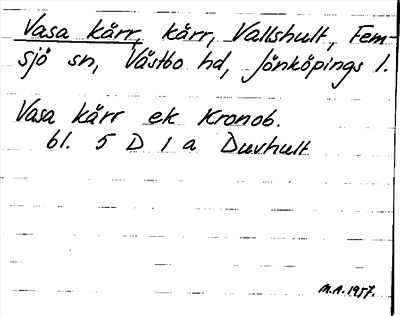 Vasa kärr, kärr, Vallshult, Fem-
sjö sn, Västbo hd, Jönköpings l.
Vasa kärr ek Kronob.
bl. 5 D 1 a Duvhult
M.A. 1957.